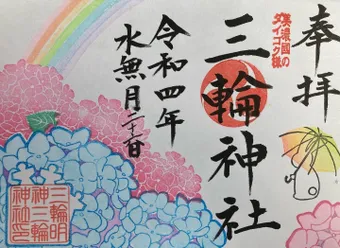 奉拝
美濃國の
ダイコク様
三輪神社
令和四年
水無月二十日
三輪明
神三輪
神社印